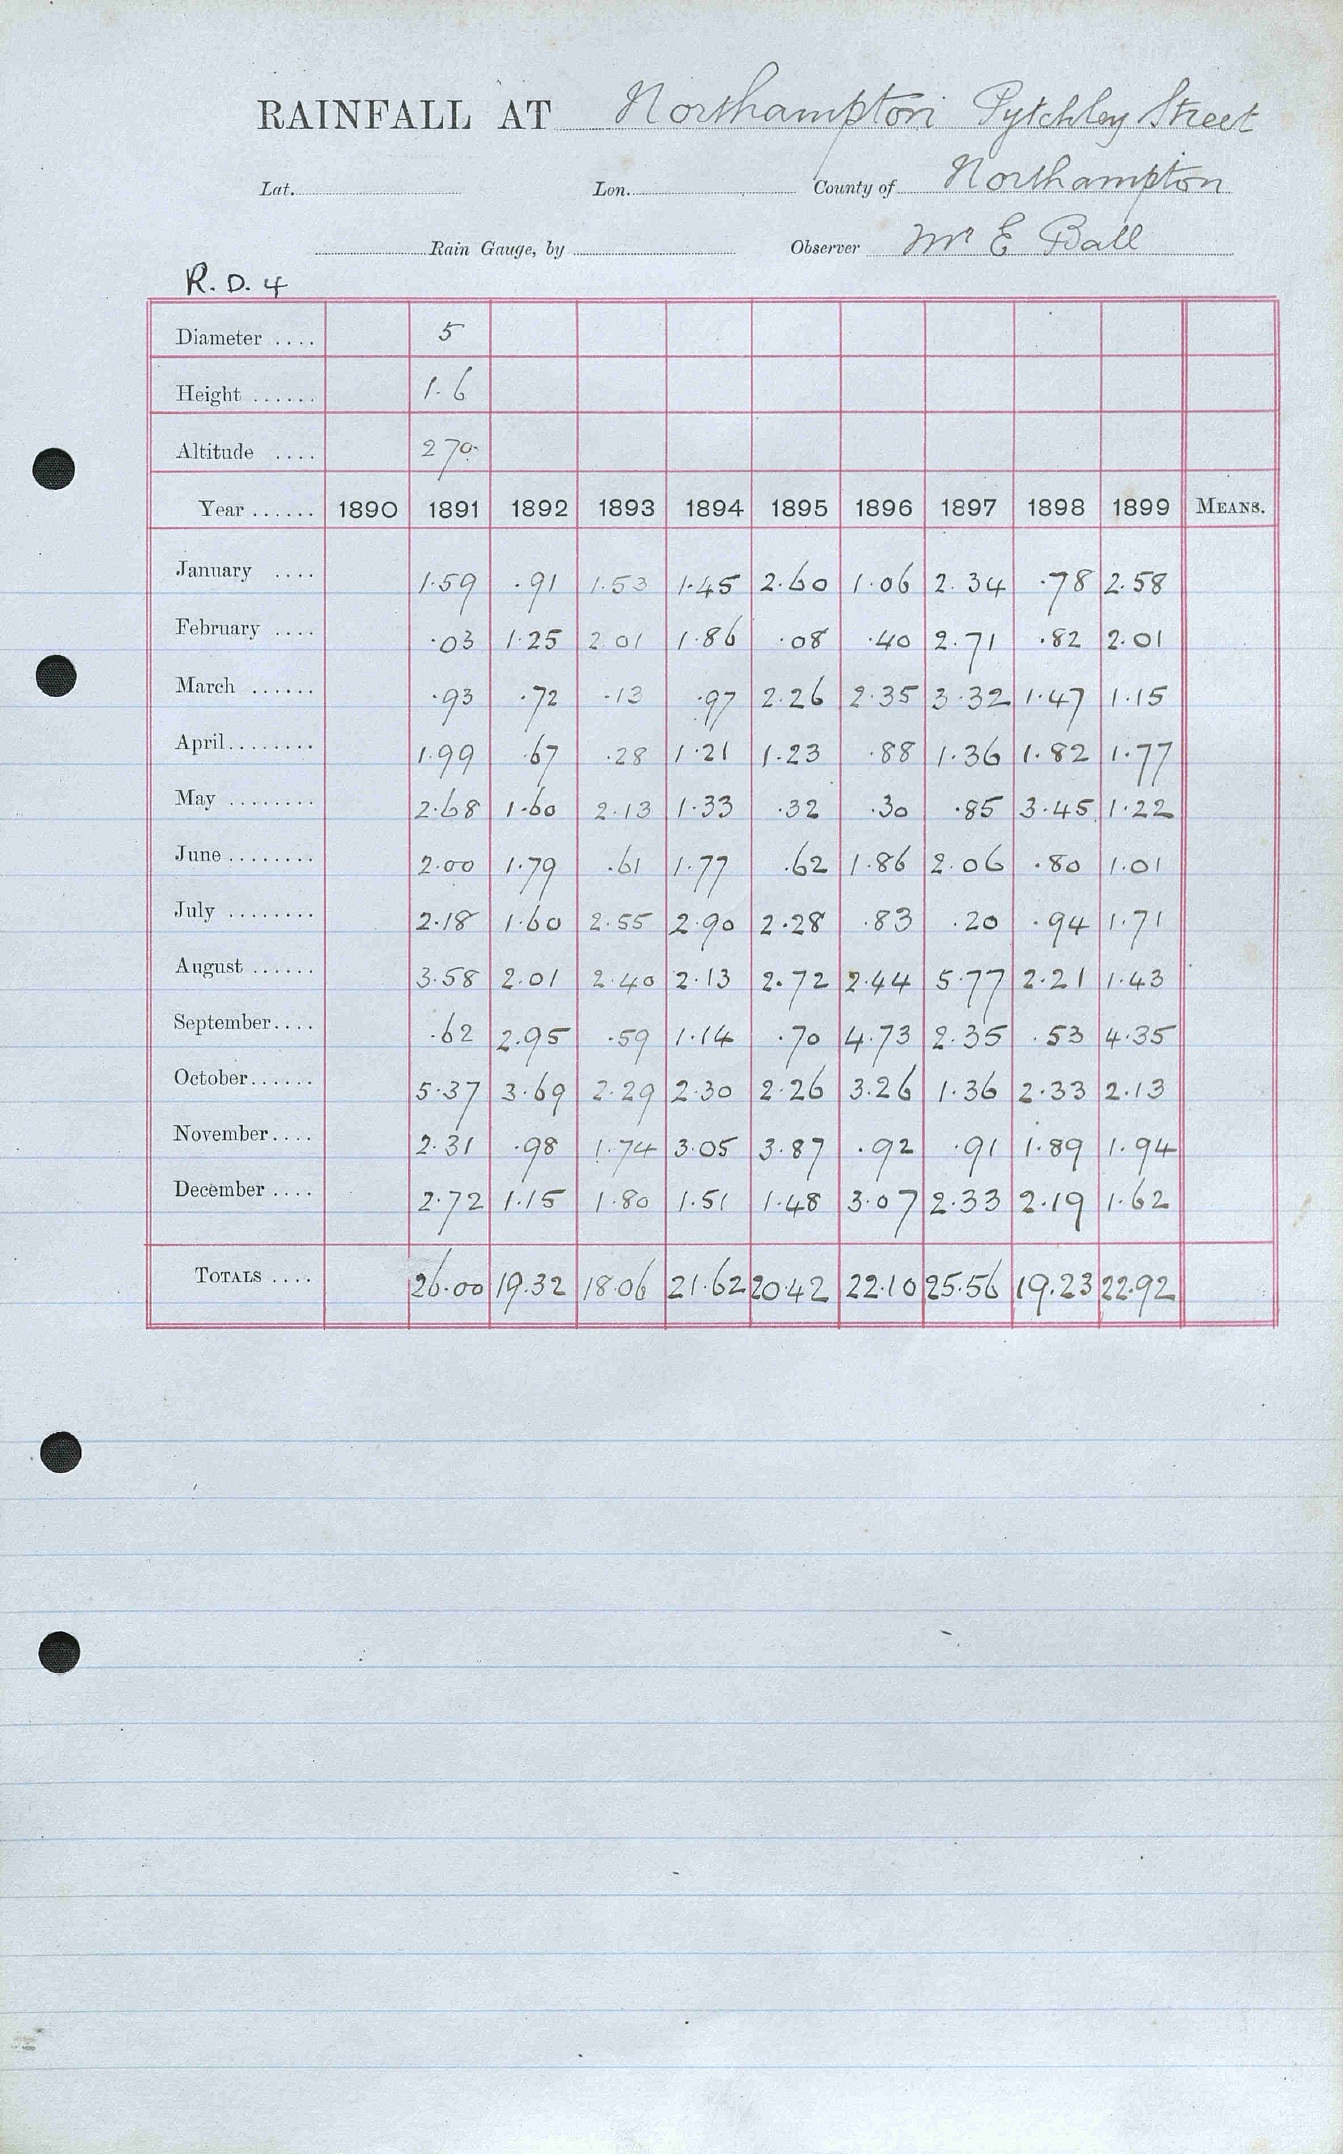 RAINFALL AT Northampton Pytchley Street
Lat. Lon. County of Northampton
Rain Gauge, by Observer Mr E Ball
R. D. 4
Diameter .... 5
Height ...... 1.6
Altitude .... 270
Year ...... 1890 1891 1892 1893 1894 1895 1896 1897 1898 1899 MEANS.
January .... 1.59 .91 1.53 1.45 2.60 1.06 2.34 .78 2.58
February .... .03 1.25 2.01 1.86 .08 .40 2.71 .82 2.01
March ...... .93 .72 .13 .97 2.26 2.35 3.32 1.47 1.15
April ........ 1.99 .67 .28 1.21 1.23 .88 1.36 1.82 1.77
May ........ 2.68 1.60 2.13 1.33 .32 .30 .85 3.45 1.22
June ........ 2.00 1.79 .61 1.77 .62 1.86 2.06 .80 1.01
July ........ 2.18 1.60 2.55 2.90 2.28 .83 .20 .94 1.71
August ...... 3.58 2.01 2.40 2.13 2.72 2.44 5.77 2.21 1.43
September .... .62 2.95 .59 1.14 .70 4.73 2.35 .53 4.35
October ...... 5.37 3.69 2.29 2.30 2.26 3.26 1.36 2.33 2.13
November .... 2.31 .98 1.74 3.05 3.87 .92 .91 1.89 1.94
December .... 2.72 1.15 1.80 1.51 1.48 3.07 2.33 2.19 1.62
TOTALS .... 26.00 19.32 18.06 21.62 20.42 22.10 25.56 19.23 22.92